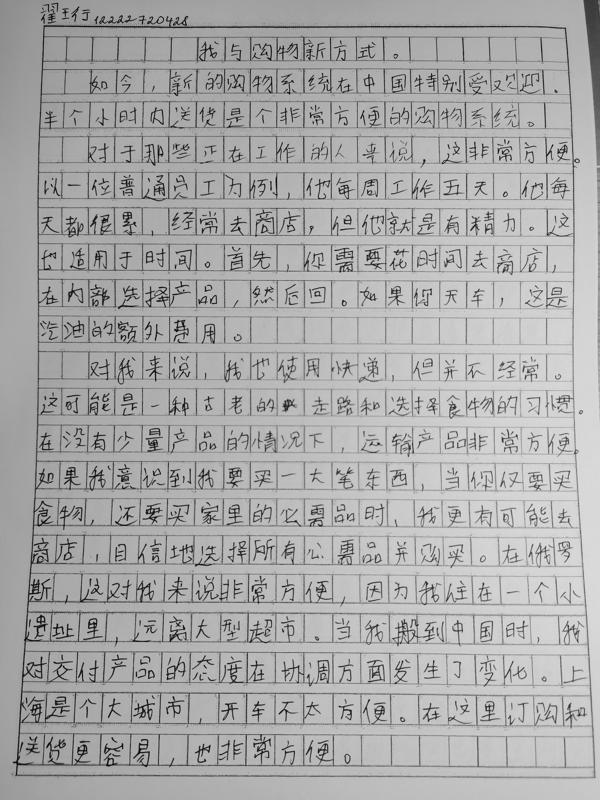 翟王行 12222720428
我与购物新方式。
如今，新的购物系统在中国特别受欢迎.
半个小时内送货是个非常方便的购物系统。
对于那些正在工作的人来说，这非常方便。
以一位普通员工为例，他每周工作五天。他每
天都很累，经常去商店，但他就是有精力。这
也适用于时间。首先，你需要花时间去商店，
在内部选择产品，然后回。如果你天车，这是
汽油的额外费用。
对我来说，我也使用快递，但并不经常。
这可能是一种古老的走路和选择食物的习惯。
在没有少量产品的情况下，运输产品非常方便。
如果我意识到我要买一大笔东西，当你仅要买
食物，还要买家里的必需品时，我更有可能去
商店，自信地选择所有必需品并购买。在俄罗
斯，这对我来说非常方便，因为我住在一个小
遗址里，远离大型超市。当我搬到中国时，我
对交付产品的态度在协调方面发生了变化。上
海是个大城市，开车不太方便。在这里订购和
送货更容易，也非常方便。